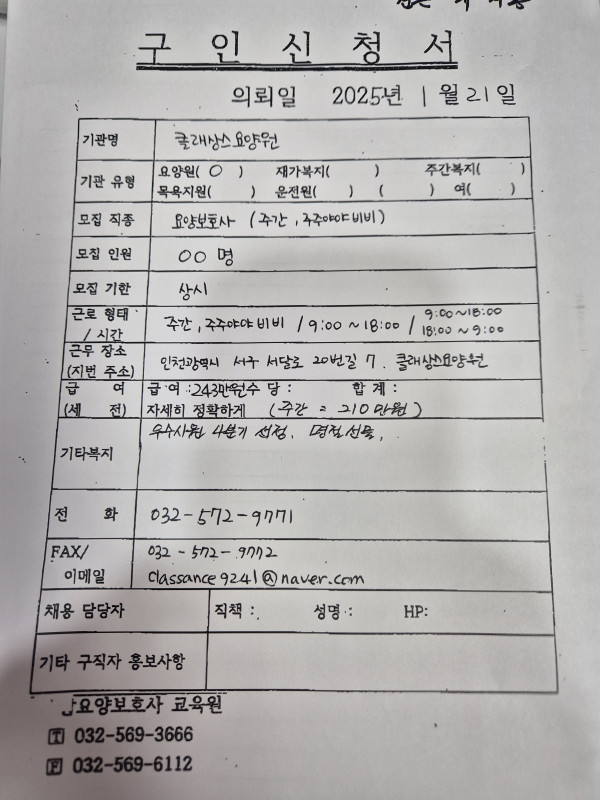 구 인 신 청 서
의뢰일 2025년 1월 21일
기관명 클래상스요양원
기관 유형 요양원( ○ ) 재가복지( ) 주간복지( )
목욕지원( ) 운전원( ) ( ) 여( )
모집 직종 요양보호사 (주간, 주주야야비비)
모집 인원 00 명
모집 기한 상시
근로 형태 / 시간 주간, 주주야야비비 / 9:00 ~ 18:00 / 9:00 ~ 18:00
18:00 ~ 9:00
근무 장소 (지번 주소) 인천광역시 서구 서달로 20번길 7. 클래상스요양원
급 여 (세 전) 급 여 : 243만원 수 당 : 합 계 :
자세히 정확하게 (주간 = 210만원)
기타복지 우수사원 4분기 선정, 명절선물,
전 화 032-572-9771
FAX/ 032-572-9772
이메일 classance9241@naver.com
채용 담당자 직책 : 성명 : HP:
기타 구직자 홍보사항
요양보호사 교육원
T 032-569-3666
F 032-569-6112